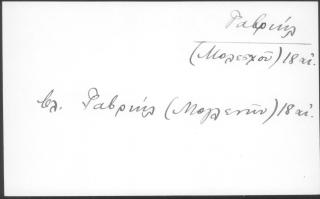 Γαβριήλ
(Μολεσχοῦ) 18 αἰ.
βλ. Γαβριήλ (Μολλενῆν) 18 αἰ.